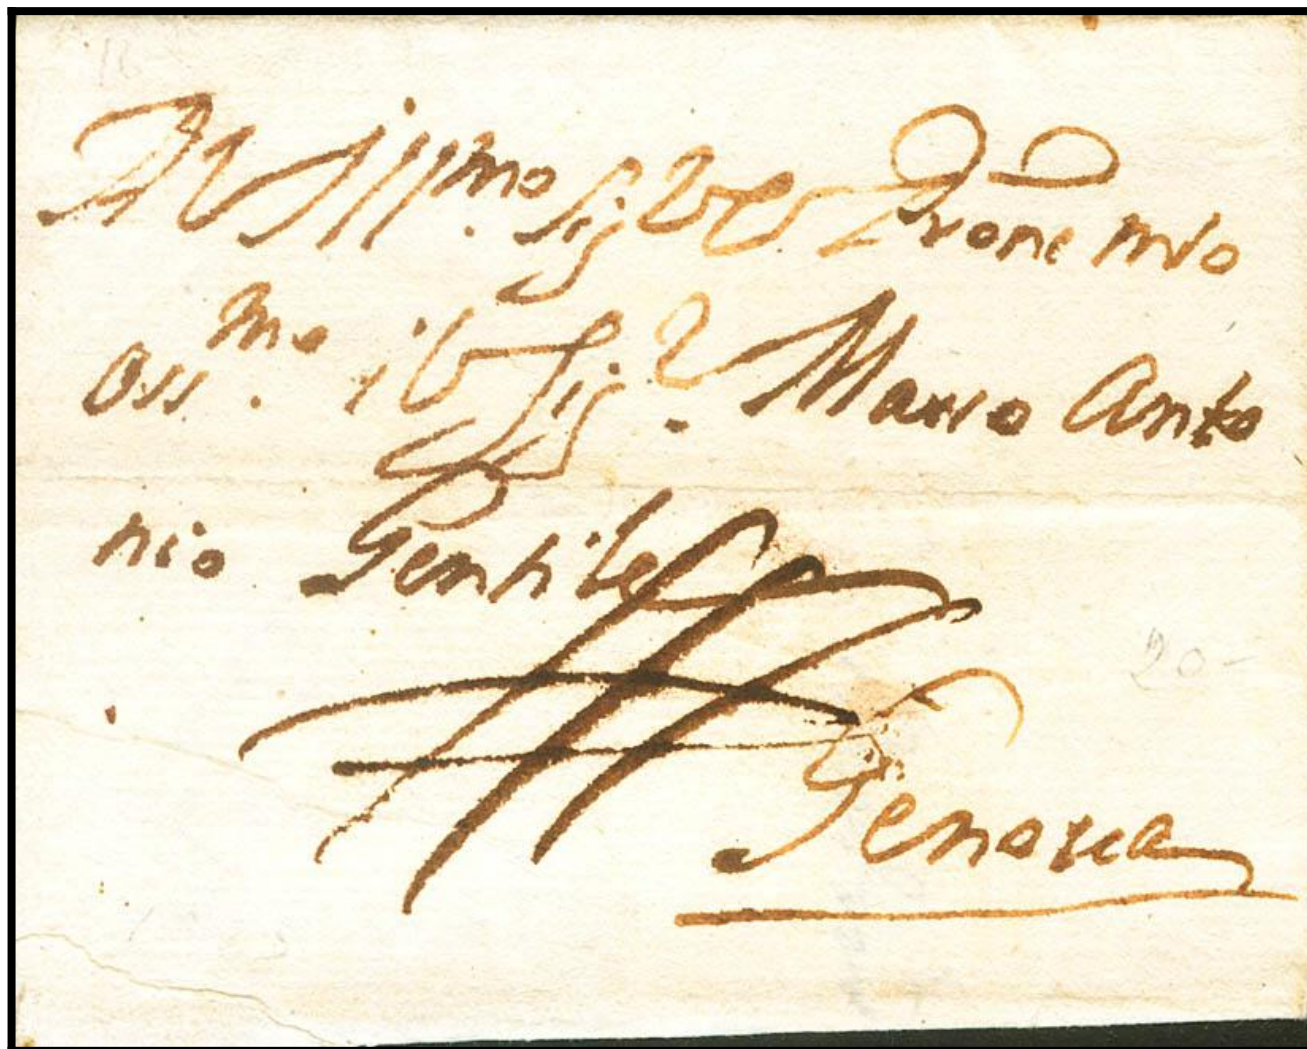 Ill.mo Sig.r e Prone mio
Oss.mo il Sig.r Marco Anto
nio Gentile
Genova
20-